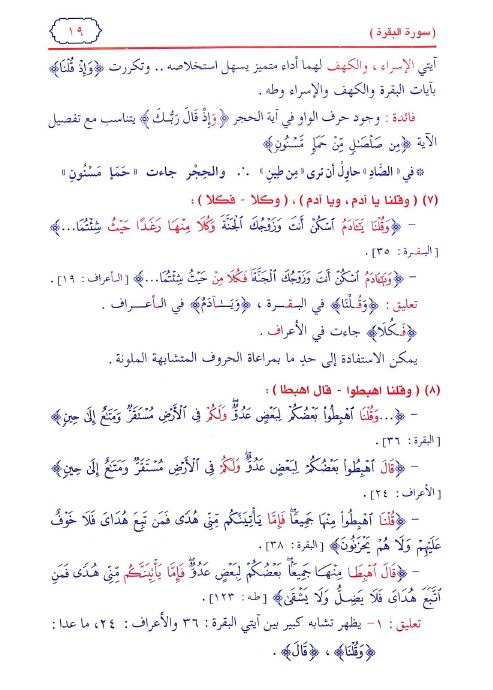 ( سورة البقرة )
١٩
آيتي الإسراء ، والكهف لهما أداء متميز يسهل استخلاصه .. وتكررت ﴿وَإِذْ قُلْنَا﴾
بآيات البقرة والكهف والإسراء وطه .
فائدة : وجود حرف الواو في آية الحجر ﴿وَإِذْ قَالَ رَبُّكَ﴾ يتناسب مع تفصيل
الآية ﴿مِن صَلْصَٰلٍ مِّنْ حَمَإٍ مَّسْنُونٍ﴾
* في «الصَّاد» حاولْ أن ترى «مِن طِينٍ» ∴ والحِجْر جاءت «حَمَإٍ مَسْنُونٍ»
(٧) ( وقلنا يا آدم ، ويا آدم ) ، ( وكلا - فكلا ) :
- ﴿وَقُلْنَا يَٰٓـَٔادَمُ ٱسْكُنْ أَنتَ وَزَوْجُكَ ٱلْجَنَّةَ وَكُلَا مِنْهَا رَغَدًا حَيْثُ شِئْتُمَا...﴾
[البقرة : ٣٥] .
- ﴿وَيَٰٓـَٔادَمُ ٱسْكُنْ أَنتَ وَزَوْجُكَ ٱلْجَنَّةَ فَكُلَا مِنْ حَيْثُ شِئْتُمَا...﴾ [الأعراف : ١٩] .
تعليق : ﴿وَقُلْنَا﴾ في البقرة ، ﴿وَيَـٰٓـَٔادَمُ﴾ في الأعراف .
﴿فَكُلَا﴾ جاءت في الأعراف .
يمكن الاستفادة إلى حدٍ ما بمراعاة الحروف المتشابهة الملونة .
(٨) ( وقلنا اهبطوا - قال اهبطا ) :
- ﴿...وَقُلْنَا ٱهْبِطُوا۟ بَعْضُكُمْ لِبَعْضٍ عَدُوٌّ ۖ وَلَكُمْ فِى ٱلْأَرْضِ مُسْتَقَرٌّ وَمَتَٰعٌ إِلَىٰ حِينٍ﴾
[البقرة : ٣٦] .
- ﴿قَالَ ٱهْبِطُوا۟ بَعْضُكُمْ لِبَعْضٍ عَدُوٌّ ۖ وَلَكُمْ فِى ٱلْأَرْضِ مُسْتَقَرٌّ وَمَتَٰعٌ إِلَىٰ حِينٍ﴾
[الأعراف : ٢٤] .
- ﴿قُلْنَا ٱهْبِطُوا۟ مِنْهَا جَمِيعًا ۖ فَإِمَّا يَأْتِيَنَّكُم مِّنِّى هُدًى فَمَن تَبِعَ هُدَاىَ فَلَا خَوْفٌ
عَلَيْهِمْ وَلَا هُمْ يَحْزَنُونَ﴾ [البقرة : ٣٨] .
- ﴿قَالَ ٱهْبِطَا مِنْهَا جَمِيعًۢا ۖ بَعْضُكُمْ لِبَعْضٍ عَدُوٌّ ۖ فَإِمَّا يَأْتِيَنَّكُم مِّنِّى هُدًى فَمَنِ
ٱتَّبَعَ هُدَاىَ فَلَا يَضِلُّ وَلَا يَشْقَىٰ﴾ [طه : ١٢٣] .
تعليق : ١- يظهر تشابه كبير بين آيتي البقرة : ٣٦ والأعراف : ٢٤، ما عدا :
﴿وَقُلْنَا﴾ ، ﴿قَالَ﴾ .